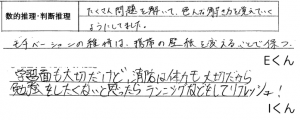 数的推理・判断推理
たくさん問題を解いて、色んな解き方を覚えていく
ようにしてました。
モチベーションの維持は、携帯の壁紙を変えることで保つ。
Eくん
学習面も大切だけど、消防は体力も大切だから
勉強をしたくないと思ったらランニングなどをしてリフレッシュ!
Iくん